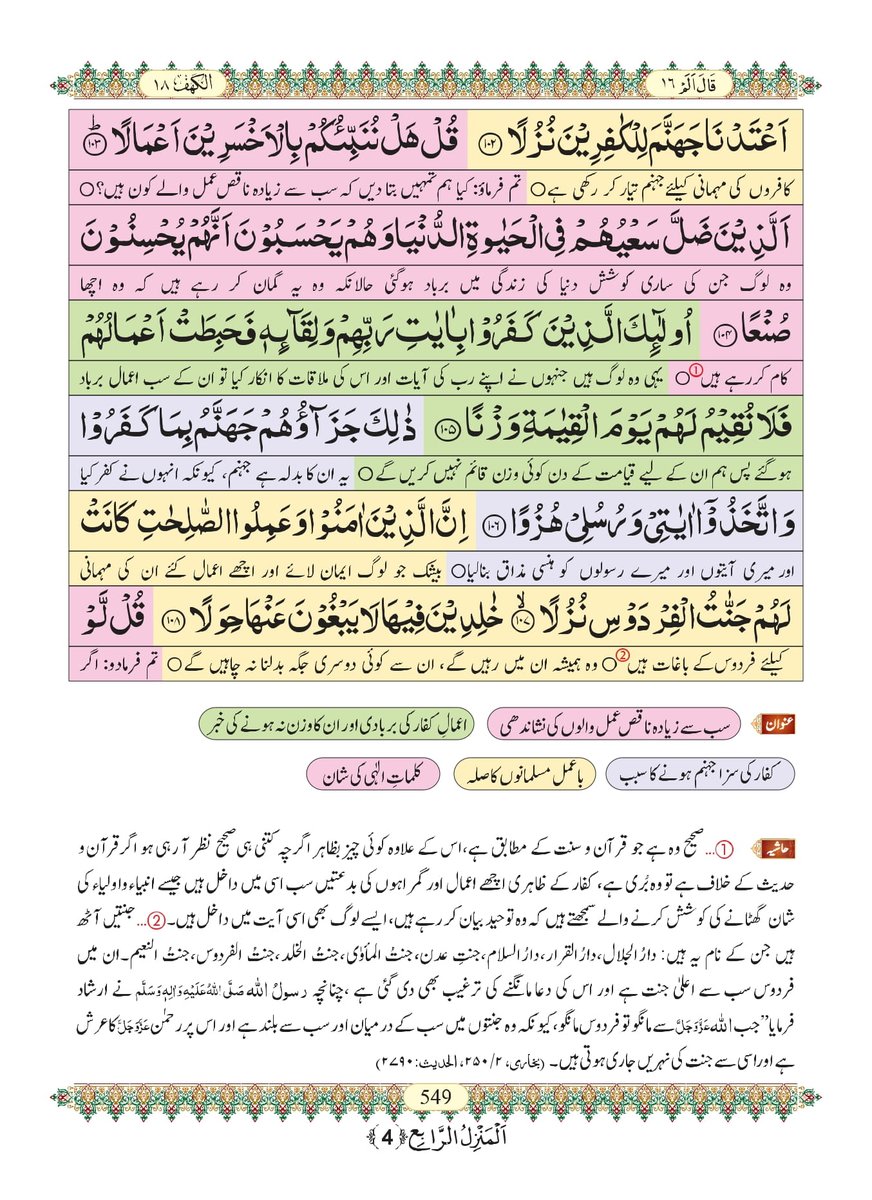 قَالَ اَلَمْ ١٦
الكهف ١٨
اَعْتَدْنَا جَهَنَّمَ لِلْكٰفِرِیْنَ نُزُلًا ﴿۱۰۲﴾ قُلْ هَلْ نُنَبِّئُكُمْ بِالْاَخْسَرِیْنَ اَعْمَالًا ؕ﴿۱۰۳﴾
کافروں کی مہمانی کیلئے جہنم تیار کر رکھی ہے ○ تم فرماؤ: کیا ہم تمہیں بتا دیں کہ سب سے زیادہ ناقص عمل والے کون ہیں؟ ○
اَلَّذِیْنَ ضَلَّ سَعْیُهُمْ فِی الْحَیٰوةِ الدُّنْیَا وَ هُمْ یَحْسَبُوْنَ اَنَّهُمْ یُحْسِنُوْنَ
وہ لوگ جن کی ساری کوشش دنیا کی زندگی میں برباد ہوگئی حالانکہ وہ یہ گمان کر رہے ہیں کہ وہ اچھا
صُنْعًا ﴿۱۰۴﴾ اُولٰٓىٕكَ الَّذِیْنَ كَفَرُوْا بِاٰیٰتِ رَبِّهِمْ وَ لِقَآىٕهٖ فَحَبِطَتْ اَعْمَالُهُمْ
کام کر رہے ہیں ① ○ یہی وہ لوگ ہیں جنہوں نے اپنے رب کی آیات اور اس کی ملاقات کا انکار کیا تو ان کے سب اعمال برباد
فَلَا نُقِیْمُ لَهُمْ یَوْمَ الْقِیٰمَةِ وَزْنًا ﴿۱۰۵﴾ ذٰلِكَ جَزَآؤُهُمْ جَهَنَّمُ بِمَا كَفَرُوْا
ہوگئے پس ہم ان کے لیے قیامت کے دن کوئی وزن قائم نہیں کریں گے ○ یہ ان کا بدلہ ہے جہنم، کیونکہ انہوں نے کفر کیا
وَ اتَّخَذُوْۤا اٰیٰتِیْ وَ رُسُلِیْ هُزُوًا ﴿۱۰۶﴾ اِنَّ الَّذِیْنَ اٰمَنُوْا وَ عَمِلُوا الصّٰلِحٰتِ كَانَتْ
اور میری آیتوں اور میرے رسولوں کو ہنسی مذاق بنالیا ○ بیشک جو لوگ ایمان لائے اور اچھے اعمال کئے ان کی مہمانی
لَهُمْ جَنّٰتُ الْفِرْدَوْسِ نُزُلًا ۙ﴿۱۰۷﴾ خٰلِدِیْنَ فِیْهَا لَا یَبْغُوْنَ عَنْهَا حِوَلًا ﴿۱۰۸﴾ قُلْ لَّوْ
کیلئے فردوس کے باغات ہیں ② ○ وہ ہمیشہ ان میں رہیں گے، ان سے کوئی دوسری جگہ بدلنا نہ چاہیں گے ○ تم فرمادو: اگر
عنوان سب سے زیادہ ناقص عمل والوں کی نشاندھی اعمالِ کفار کی بربادی اور ان کا وزن نہ ہونے کی خبر
کفار کی سزا جہنم ہونے کا سبب باعمل مسلمانوں کا صلہ کلماتِ الٰہی کی شان
حاشیہ ①... صحیح وہ ہے جو قرآن و سنت کے مطابق ہے، اس کے علاوہ کوئی چیز بظاہر اگرچہ کتنی ہی صحیح نظر آ رہی ہو اگر قرآن و
حدیث کے خلاف ہے تو وہ بُری ہے، کفار کے ظاہری اچھے اعمال اور گمراہوں کی بدعتیں سب اسی میں داخل ہیں جیسے انبیاء و اولیاء کی
شان گھٹانے کی کوشش کرنے والے سمجھتے ہیں کہ وہ توحید بیان کر رہے ہیں، ایسے لوگ بھی اسی آیت میں داخل ہیں۔ ②... جنتیں آٹھ
ہیں جن کے نام یہ ہیں: دارُ الجلال، دارُ القرار، دارُ السلام، جنتِ عدن، جنتُ المأوٰی، جنتُ الخلد، جنتُ الفردوس، جنتُ النعیم۔ ان میں
فردوس سب سے اعلیٰ جنت ہے اور اس کی دعا مانگنے کی ترغیب بھی دی گئی ہے، چنانچہ رسولُ اللہ صَلَّی اللہُ عَلَیْہِ وَاٰلِہٖ وَسَلَّم نے ارشاد
فرمایا ”جب اللہ عَزَّوَجَلَّ سے مانگو تو فردوس مانگو، کیونکہ وہ جنتوں میں سب کے درمیان اور سب سے بلند ہے اور اس پر رحمٰن عَزَّوَجَلَّ کا عرش
ہے اور اسی سے جنت کی نہریں جاری ہوتی ہیں۔ (بخاری، ۲/۲۵۰، الحدیث: ۲۷۹۰)
549
اَلْمَنْزِلُ الرَّابِع ﴿4﴾